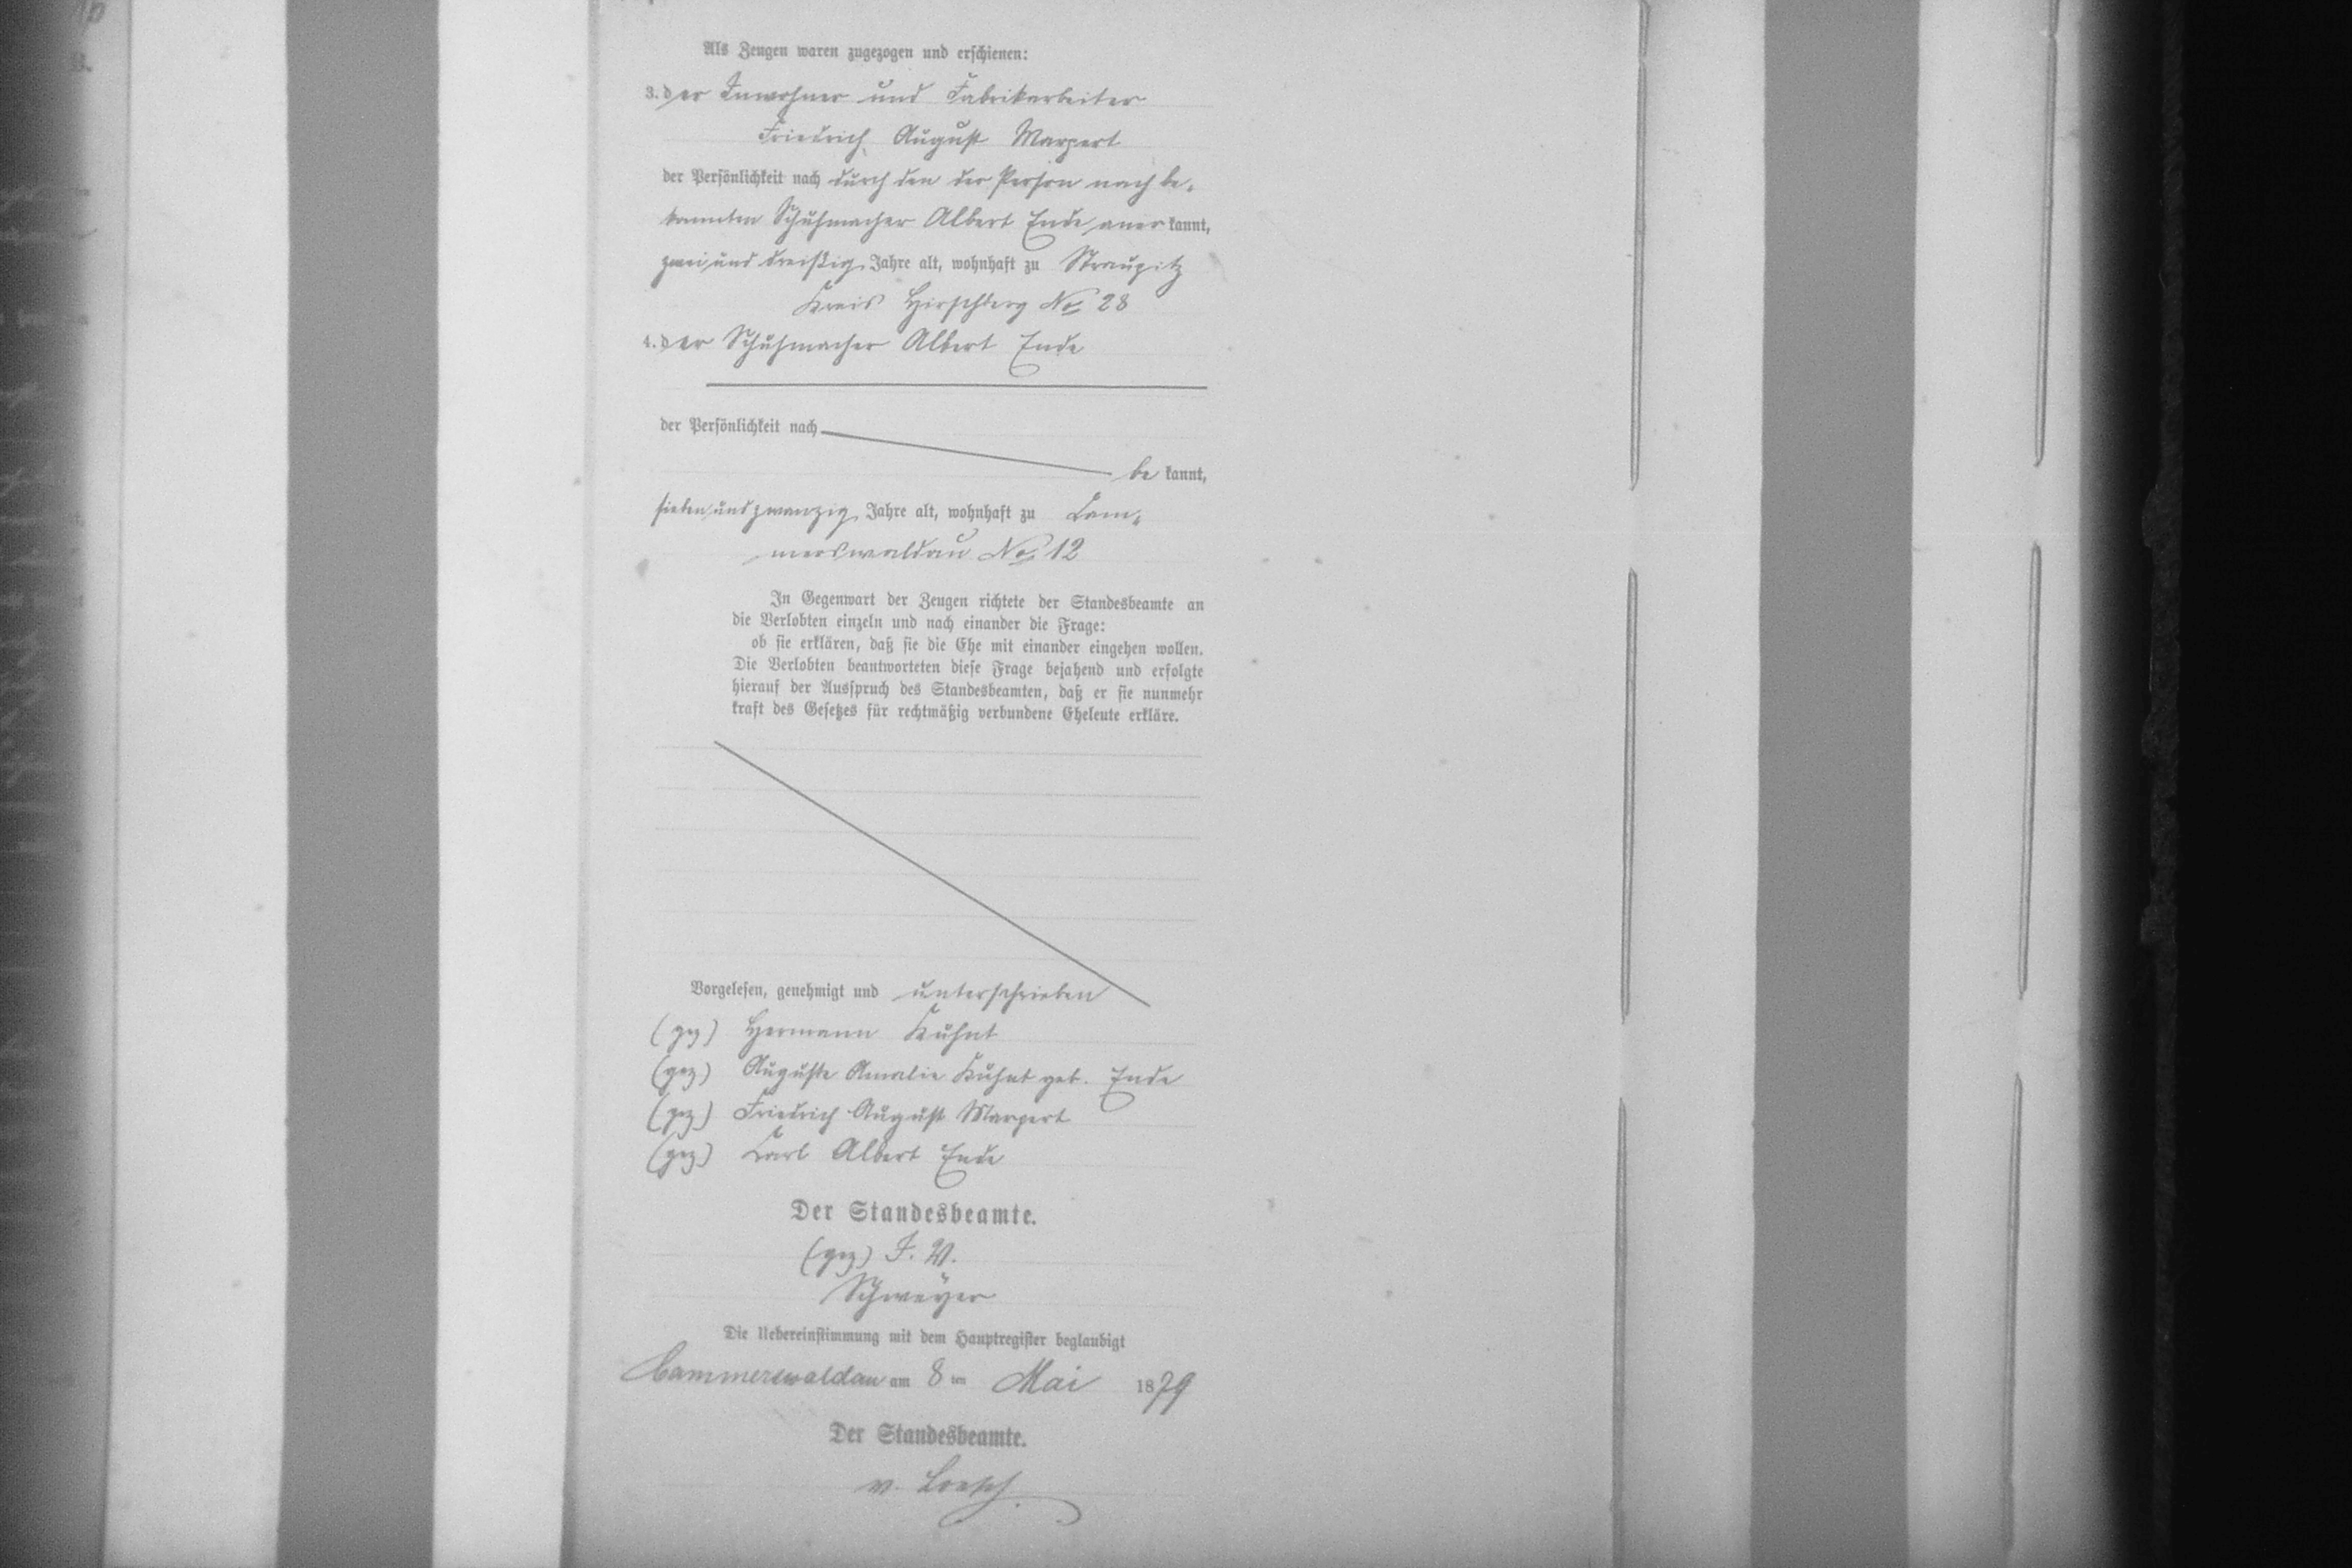 Als Zeugen waren zugezogen und erschienen:
3. der Inwohner und Fabrikarbeiter
Friedrich August Marpert
der Persönlichkeit nach durch den der Person nach be-
kannten Schuhmacher Albert Ende aner kannt,
zwei und dreißig Jahre alt, wohnhaft zu Straupitz
Kreis Hirschberg No 28
4. der Schuhmacher Albert Ende
der Persönlichkeit nach
be kannt,
sieben und zwanzig Jahre alt, wohnhaft zu Cam-
merswaldau No 12
In Gegenwart der Zeugen richtete der Standesbeamte an
die Verlobten einzeln und nach einander die Frage:
ob sie erklären, daß sie die Ehe mit einander eingehen wollen.
Die Verlobten beantworteten diese Frage bejahend und erfolgte
hierauf der Ausspruch des Standesbeamten, daß er sie nunmehr
kraft des Gesetzes für rechtmäßig verbundene Eheleute erkläre.
Vorgelesen, genehmigt und unterschrieben
(gez) Hermann Kuhnt
(gez) Auguste Amalie Kuhnt geb. Ende
(gez) Friedrich August Marpert
(gez) Carl Albert Ende
Der Standesbeamte.
(gez) I. V.
Schweyer
Die Uebereinstimmung mit dem Hauptregister beglaubigt
Cammerswaldau am 8 ten Mai 1879
Der Standesbeamte.
v. Loesch